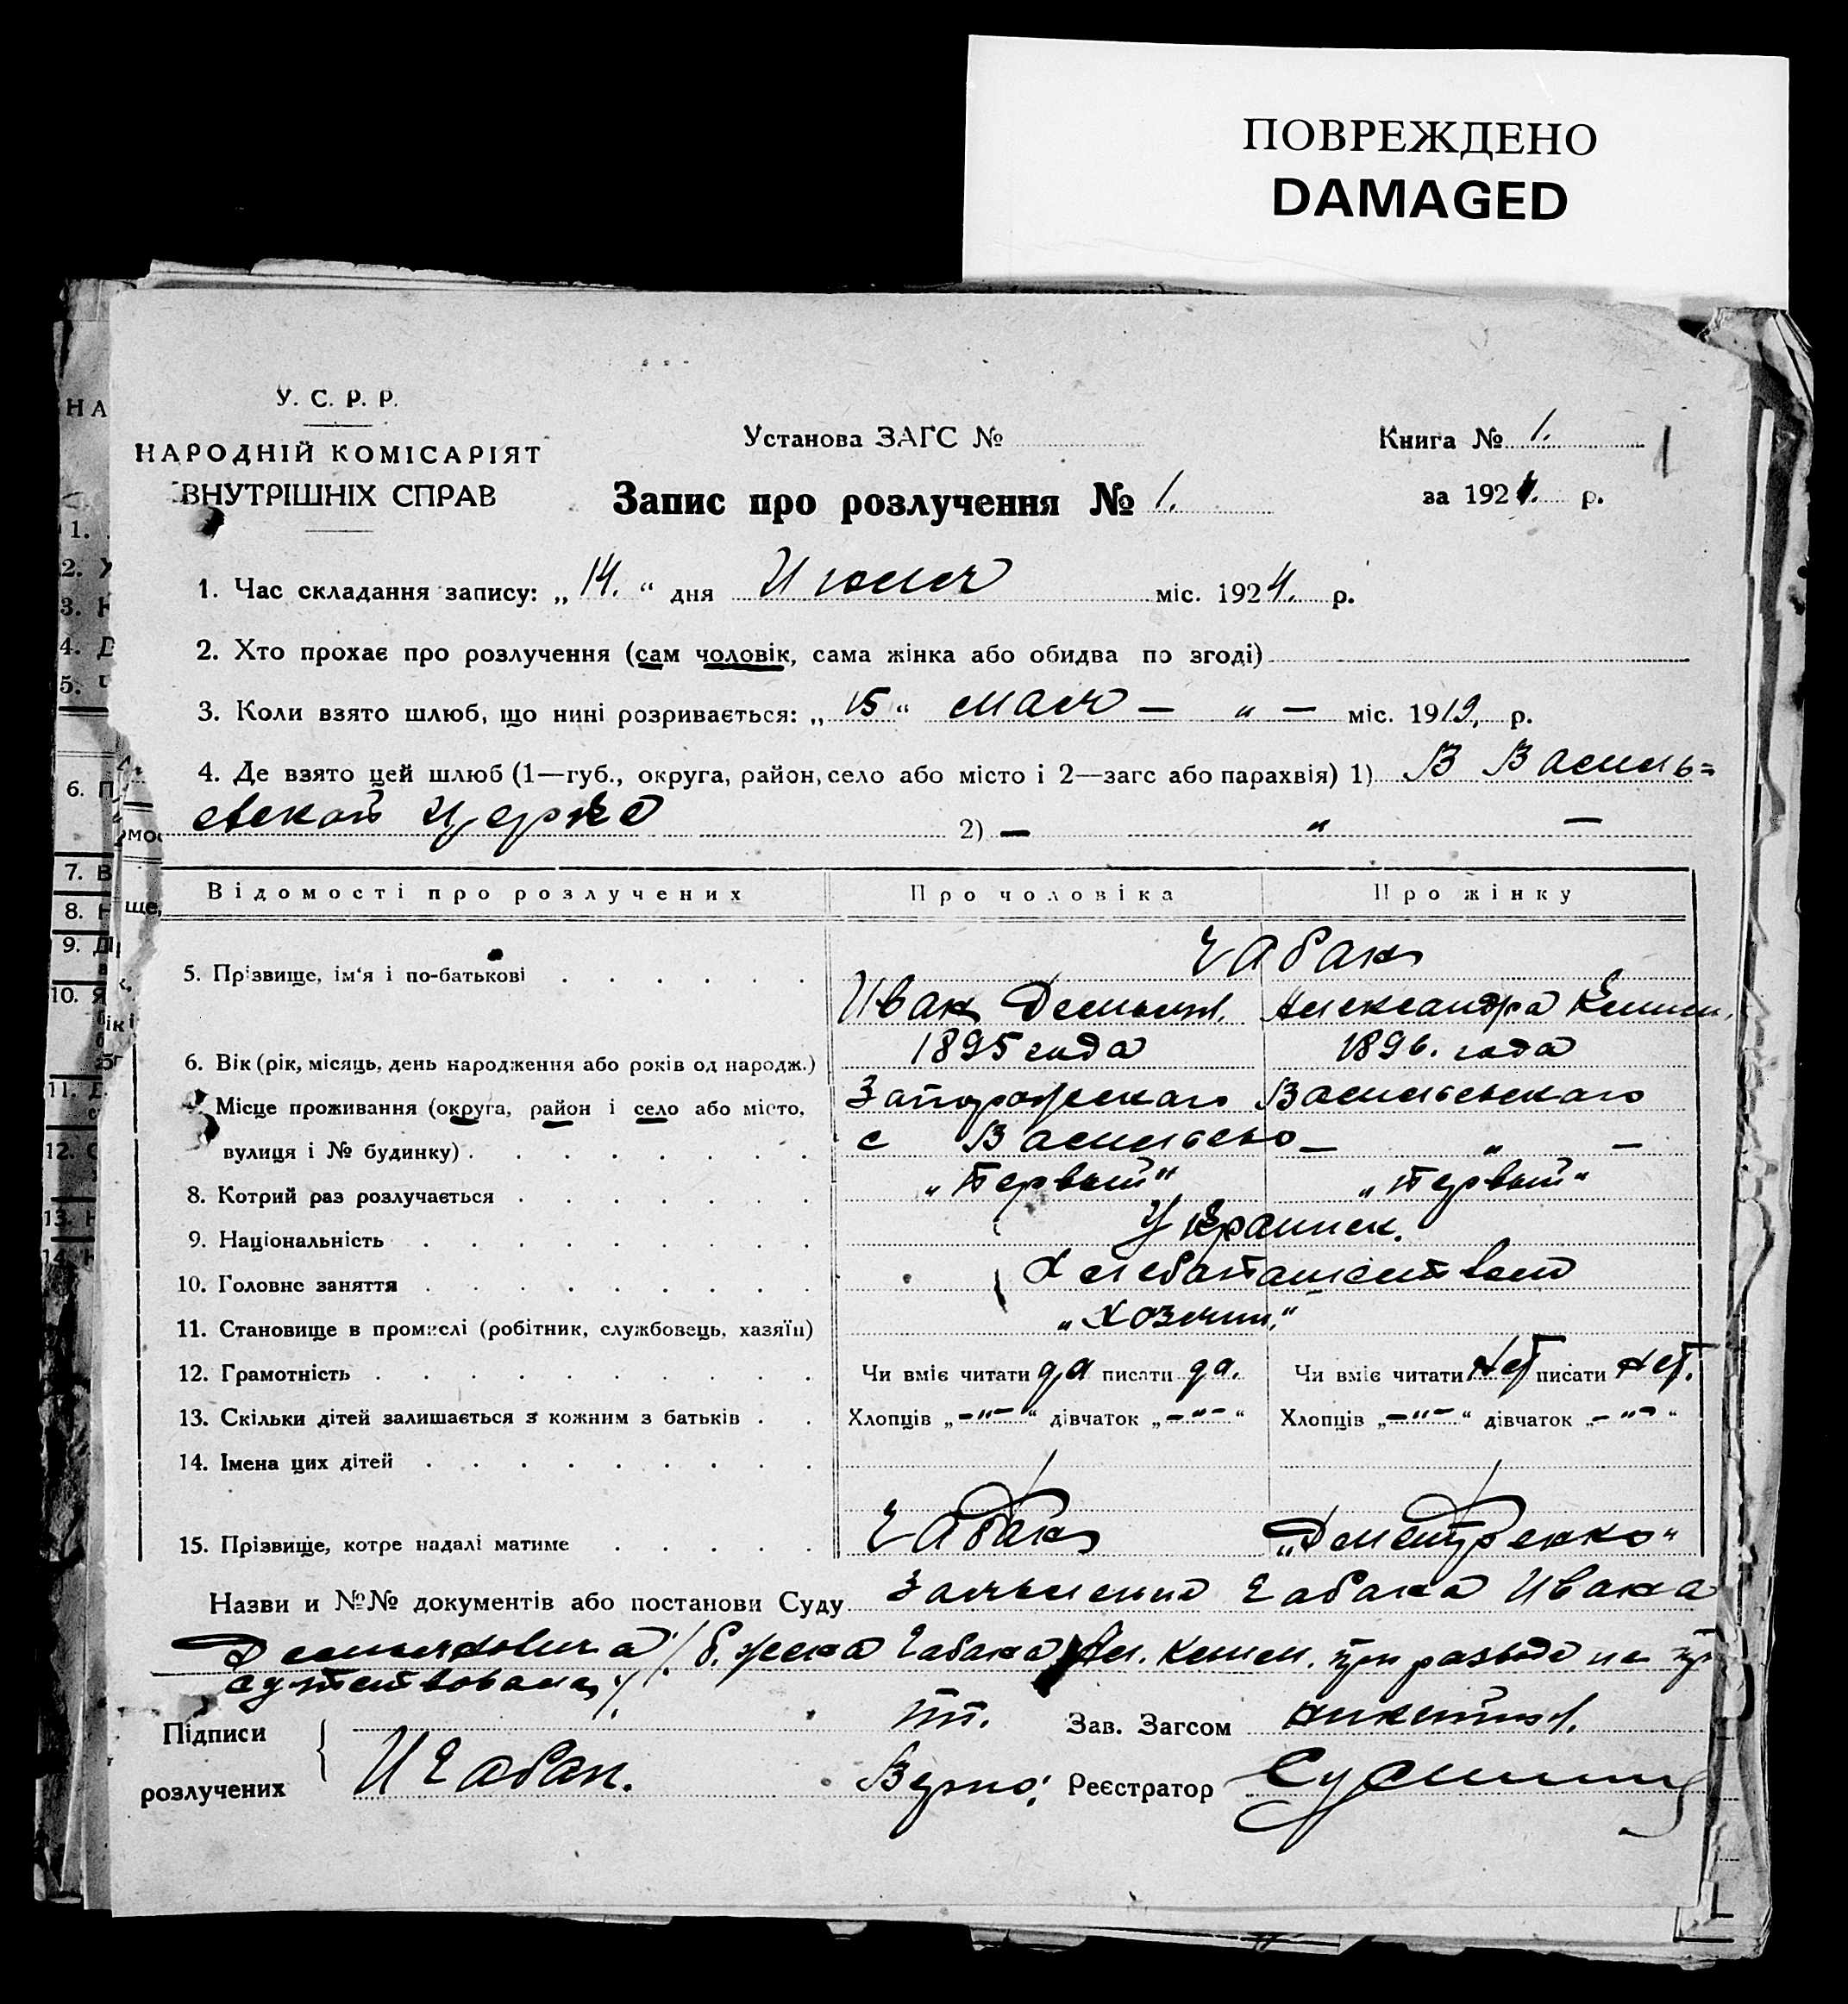 ПОВРЕЖДЕНО
DAMAGED
У. С. Р. Р.
НАРОДНІЙ КОМІСАРІЯТ
ВНУТРІШНІХ СПРАВ
Установа ЗАГС №
Книга № 1.
Запис про розлучення № 1.
за 1924. р.
1. Час складання запису: „14.“ дня Июля міс. 1924. р.
2. Хто прохає про розлучення (сам чоловік, сама жінка або обидва по згоді)
3. Коли взято шлюб, що нині розривається: „15“ мая — „ — міс. 1919, р.
4. Де взято цей шлюб (1—губ., округа, район, село або місто і 2—загс або парахвія) 1) В Василь=
евской церкве 2) — „ —
Відомості про розлучених Про чоловіка Про жінку
5. Прізвище, ім‘я і по-батькові Чабак
Иван Демьян. Александра
6. Вік (рік, місяць, день народження або років од народж.) 1895 года 1896. года
Місце проживання (округа, район і село або місто, Запорожского Васильевского
вулиця і № будинку) с Васильево — „ —
8. Котрий раз розлучається „Первый“ „Первый“
9. Національність Украинск.
10. Головне заняття Хлебопашеством
11. Становище в промислі (робітник, службовець, хазяїн) „Хозяин.“
12. Грамотність Чи вміє читати да писати да. Чи вміє читати нет писати нет.
13. Скільки дітей залишається з кожним з батьків Хлопців „-"-“ дівчаток „-"-“ Хлопців „-"-“ дівчаток „-"-“
14. Імена цих дітей
15. Прізвище, котре надалі матиме Чабак „Деметренко“
Назви и №№ документів або постанови Суду Заявление Чабака Ивана
Демьяновича /б. жена Чабака Ал. при разводе не
сутствовала/.
Підписи пп. Зав. Загсом Никитин.
розлучених И Чабан. Верно: Реєстратор